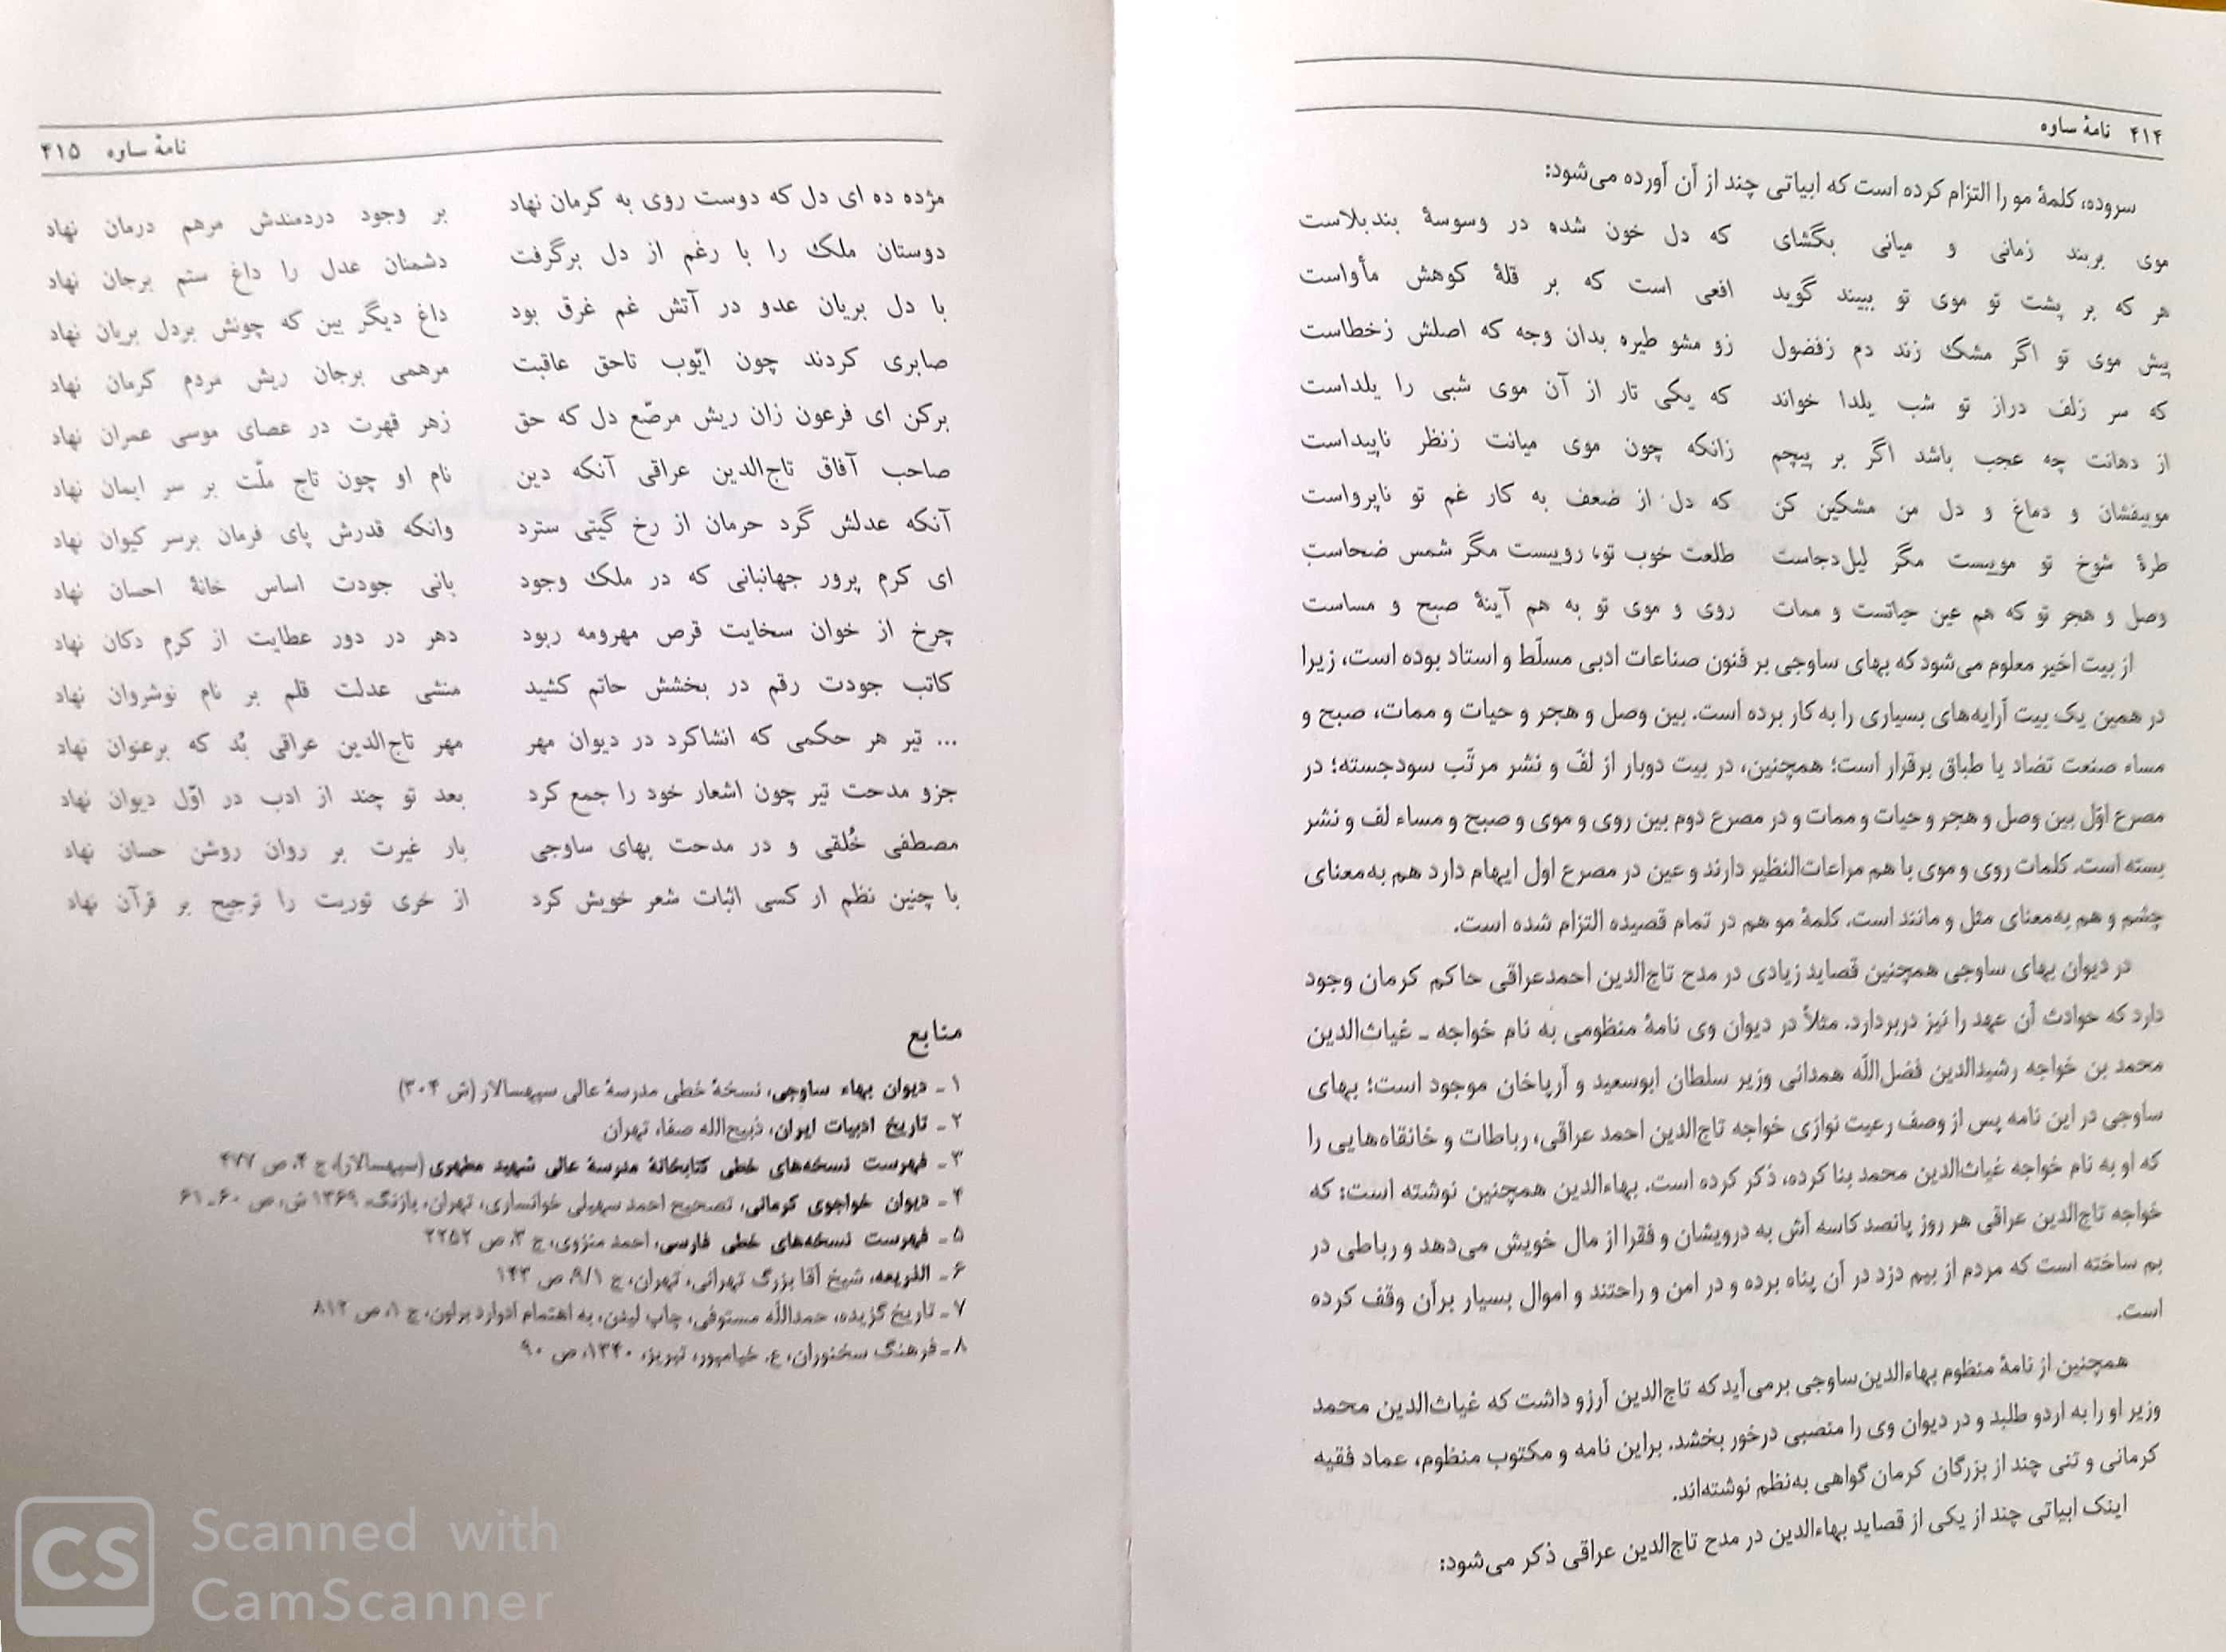 ۴۱۴ نامهٔ ساوه
سروده، کلمهٔ مو را التزام کرده است که ابیاتی چند از آن آورده می‌شود:
موی بربند زمانی و میانی بگشای که دل خون شده در وسوسهٔ بندبلاست
هر که بر پشت تو موی تو ببیند گوید افعی است که بر قلهٔ کوهش مأواست
پیش موی تو اگر مشک زند دم زفضول زو مشو طیره بدان وجه که اصلش زخطاست
که سر زلف دراز تو شب یلدا خواند که یکی تار از آن موی شبی را یلداست
از دهانت چه عجب باشد اگر بر پیچم زانکه چون موی میانت زنظر ناپیداست
موبیفشان و دماغ و دل من مشکین کن که دل از ضعف به کار غم تو ناپرواست
طرهٔ شوخ تو موییست مگر لیل‌دجاست طلعت خوب تو، روییست مگر شمس ضحاست
وصل و هجر تو که هم عین حیاتست و ممات روی و موی تو به هم آینهٔ صبح و مساست
از بیت اخیر معلوم می‌شود که بهای ساوجی بر فنون صناعات ادبی مسلّط و استاد بوده است، زیرا
در همین یک بیت آرایه‌های بسیاری را به کار برده است. بین وصل و هجر و حیات و ممات، صبح و
مساء صنعت تضاد یا طباق برقرار است؛ همچنین، در بیت دوبار از لفّ و نشر مرتّب سودجسته؛ در
مصرع اوّل بین وصل و هجر و حیات و ممات و در مصرع دوم بین روی و موی و صبح و مساء لف و نشر
بسته است. کلمات روی و موی با هم مراعات‌النظیر دارند و عین در مصرع اول ایهام دارد هم به‌معنای
چشم و هم به‌معنای مثل و مانند است. کلمهٔ مو هم در تمام قصیده التزام شده است.
در دیوان بهای ساوجی همچنین قصاید زیادی در مدح تاج‌الدین احمدعراقی حاکم کرمان وجود
دارد که حوادث آن عهد را نیز دربردارد. مثلاً در دیوان وی نامهٔ منظومی به نام خواجه ـ غیاث‌الدین
محمد بن خواجه رشیدالدین فضل‌اللّه همدانی وزیر سلطان ابوسعید و آرپاخان موجود است؛ بهای
ساوجی در این نامه پس از وصف رعیت نوازی خواجه تاج‌الدین احمد عراقی، رباطات و خانقاه‌هایی را
که او به نام خواجه غیاث‌الدین محمد بنا کرده، ذکر کرده است. بهاءالدین همچنین نوشته است: که
خواجه تاج‌الدین عراقی هر روز پانصد کاسه آش به درویشان و فقرا از مال خویش می‌دهد و رباطی در
بم ساخته است که مردم از بیم دزد در آن پناه برده و در امن و راحتند و اموال بسیار برآن وقف کرده
است.
همچنین از نامهٔ منظوم بهاءالدین‌ساوجی برمی‌آید که تاج‌الدین آرزو داشت که غیاث‌الدین محمد
وزیر او را به اردو طلبد و در دیوان وی را منصبی درخور بخشد. براین نامه و مکتوب منظوم، عماد فقیه
کرمانی و تنی چند از بزرگان کرمان گواهی به‌نظم نوشته‌اند.
اینک ابیاتی چند از یکی از قصاید بهاءالدین در مدح تاج‌الدین عراقی ذکر می‌شود:
نامهٔ ساوه ۴۱۵
مژده ده ای دل که دوست روی به کرمان نهاد بر وجود دردمندش مرهم درمان نهاد
دوستان ملک را با رغم از دل برگرفت دشمنان عدل را داغ ستم برجان نهاد
با دل بریان عدو در آتش غم غرق بود داغ دیگر بین که چونش بردل بریان نهاد
صابری کردند چون ایّوب تاحق عاقبت مرهمی برجان ریش مردم کرمان نهاد
برکن ای فرعون زان ریش مرصّع دل که حق زهر قهرت در عصای موسی عمران نهاد
صاحب آفاق تاج‌الدین عراقی آنکه دین نام او چون تاج ملّت بر سر ایمان نهاد
آنکه عدلش گرد حرمان از رخ گیتی سترد وانکه قدرش پای فرمان برسر کیوان نهاد
ای کرم پرور جهانبانی که در ملک وجود بانی جودت اساس خانهٔ احسان نهاد
چرخ از خوان سخایت قرص مهرومه ربود دهر در دور عطایت از کرم دکان نهاد
کاتب جودت رقم در بخشش حاتم کشید منشی عدلت قلم بر نام نوشروان نهاد
... تیر هر حکمی که انشاکرد در دیوان مهر مهر تاج‌الدین عراقی بُد که برعنوان نهاد
جزو مدحت تیر چون اشعار خود را جمع کرد بعد تو چند از ادب در اوّل دیوان نهاد
مصطفی خُلقی و در مدحت بهای ساوجی بار غیرت بر روان روشن حسان نهاد
با چنین نظم ار کسی اثبات شعر خویش کرد از خری توریت را ترجیح بر قرآن نهاد
منابع
۱ ـ دیوان بهاء ساوجی، نسخهٔ خطی مدرسهٔ عالی سپهسالار (ش ۳۰۴)
۲ ـ تاریخ ادبیات ایران، ذبیح‌الله صفا، تهران
۳ ـ فهرست نسخه‌های خطی کتابخانهٔ مدرسهٔ عالی شهید مطهری (سپهسالار)، ج ۴، ص ۴۷۷
۴ ـ دیوان خواجوی کرمانی، تصحیح احمد سهیلی خوانساری، تهران، پاژنگ، ۱۳۶۹ ش، ص ۶۰ـ۶۱
۵ ـ فهرست نسخه‌های خطی فارسی، احمد منزوی، ج ۳، ص ۲۲۵۲
۶ ـ الذریعه، شیخ آقا بزرگ تهرانی، تهران، ج ۹/۱، ص ۱۴۳
۷ ـ تاریخ گزیده، حمداللّه مستوفی، چاپ لیدن، به اهتمام ادوارد براون، ج ۱، ص ۸۱۲
۸ ـ فرهنگ سخنوران، ع. خیامپور، تبریز، ۱۳۴۰، ص ۹۰
CS Scanned with
CamScanner